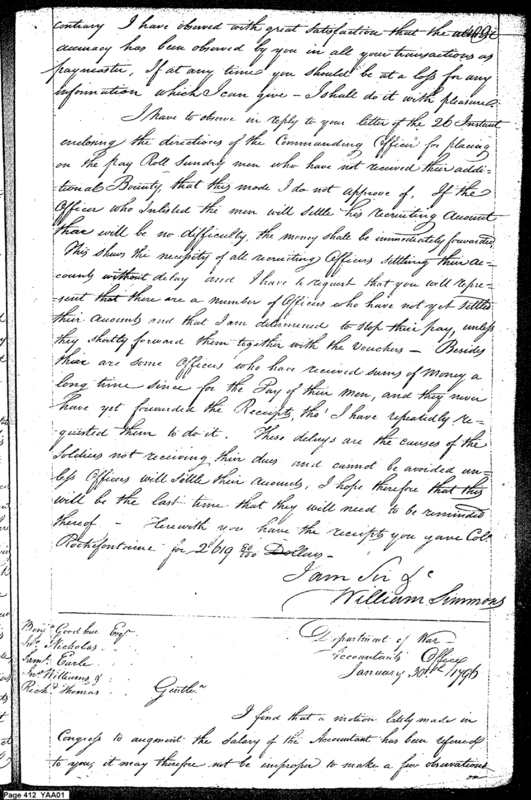 contrary I have observed with great Satisfaction that the
accuracy has been observed by you in all your transactions as
paymaster, If at any time you should be at a loss for any
information which I can give – I shall do it with pleasure
I have to observe in reply to your letter of the 26 Instant
enclosing the directions of the Commanding Officer for placing
on the pay Roll Sundry men who have not received their addi-
tional Bounty that this mode I do not approve of. If the
Officer who Inlisted the men will settle his recruiting Account
thare will be no difficulty, the money shall be immediately forwarded
This shews the necessity of all recruiting Officers settling their ac-
counts without delay and I have to request that you will repre-
sent that there are a number of Officers who have not yet settled
their Accounts and that I am determined to stop their pay, unless
they shortly forward them together with the Vouchers – Besides
thare are some Officers who have received sums of Money a
long time since for the Pay of their men, and they never
have yet forwarded the Receipts, tho' I have repeatedly re-
quested them to do it. These delays are the causes of the
Soldiers not receiving their dues and cannot be avoided un-
less Officers will settle their accounts, I hope therefore that this
will be the last time that they will need to be reminded
thereof – Herewith you have the receipts you gave Coll
Rochefontaine for 2'619 Dollars –
I am Sir &c
William Simmons
Benjn Goodhue Esqr
Jno Nicholas
Saml Earle
Jno Williams &
Richd Thomas
Department of War
Accountants Office
January 30th 1796
Gentlen
I find that a motion lately made in
Congress to augment the Salary of the Accountant has been refered
to you; it may therefore not be improper to make a few observations
Page 412 YAA01